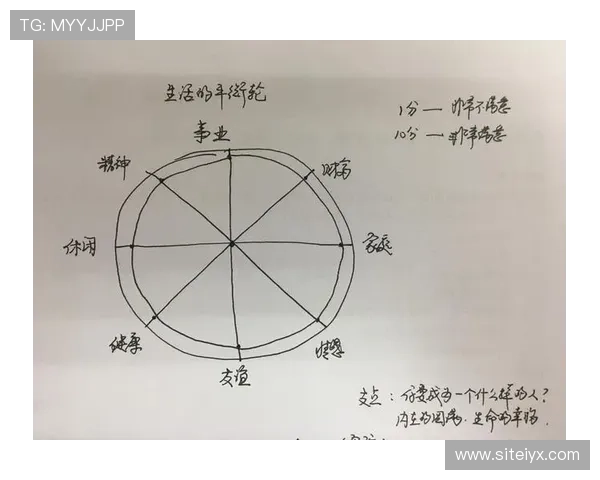 TG: MYYJJPP
生活的平衡轮
1分 — 非常不满意
10分 — 非常满意
事业
精神
财富
休闲
家庭
健康
情感
友谊
支点：你要成为一个什么样的人？
内在的圆满．生命的幸福．
www.siteiyx.com